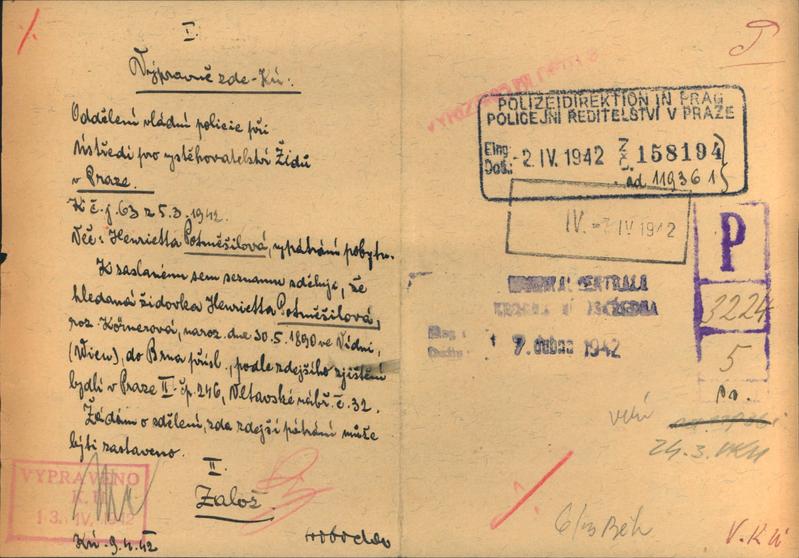 I.
Výpravně zde - Kú.
Oddělení vládní policie při
Ústředí pro vystěhovalectví Židů
v Praze.
K č.j. 63 z 5.3.1942.
Věc: Henrietta Potměšilová, vypátrání pobytu.
K zaslanému sem seznamu sděluje, že
hledaná židovka Henrietta Potměšilová,
roz. Körnerová, naroz. dne 30.5.1890 ve Vídni,
(Wien), do Brna přísl., podle zdejšího zjištění
bydlí v Praze II - čp. 246, Vltavské nábř. č. 32.
Žádám o sdělení, zda zdejší pátrání může
býti zastaveno.
II.
Založ.
VYPRAVENO
13. IV. 1942
Kú 9.4.42
POLIZEIDIREKTION IN PRAG
POLICEJNÍ ŘEDITELSTVÍ V PRAZE
Eing.
Doš.: - 2. IV. 1942 Z Č. 158194
ad 119361
IV. - 7. IV 1942
CENTRALA
7. dubna 1942
P
3224
5
24.3.
V. Kú